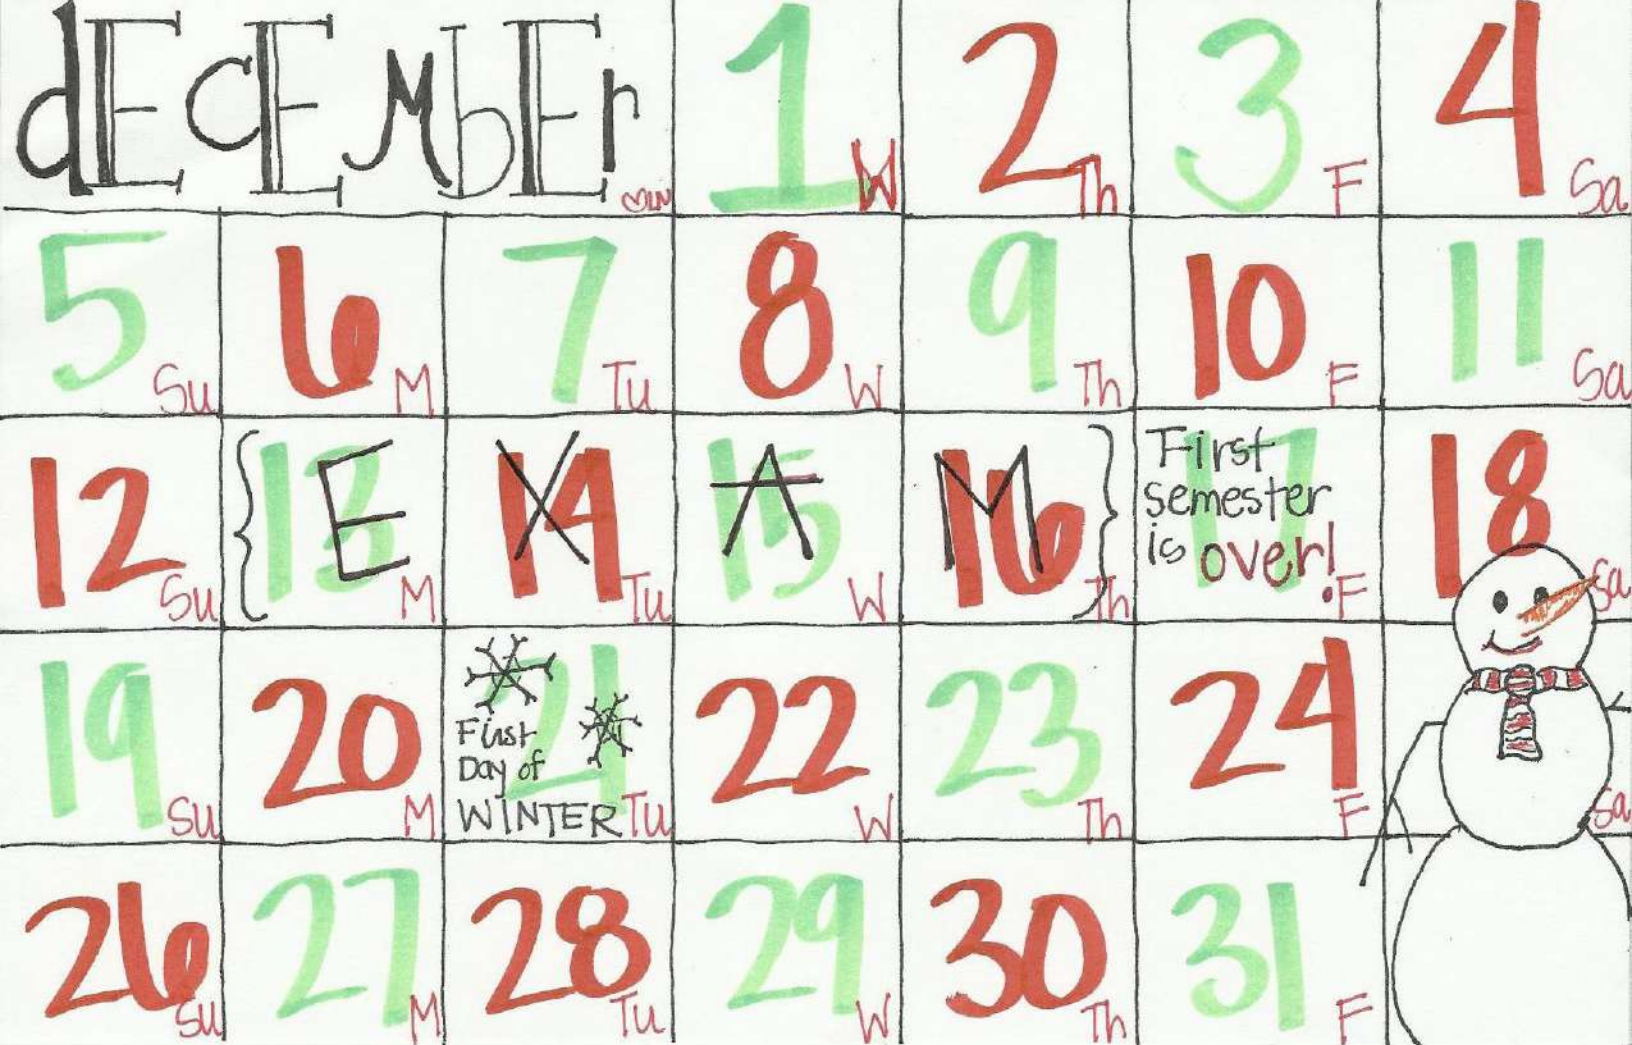 dECEMbEr
♡LN
1 W
2 Th
3 F
4 Sa
5 Su
6 M
7 Tu
8 W
9 Th
10 F
11 Sa
12 Su
{ 13 E M
14 X Tu
15 A W
16 M } Th
17
First
semester
is over!
F
18 Sa
19 Su
20 M
21
First
Day of
WINTER Tu
22 W
23 Th
24 F
Sa
26 Su
27 M
28 Tu
29 W
30 Th
31 F